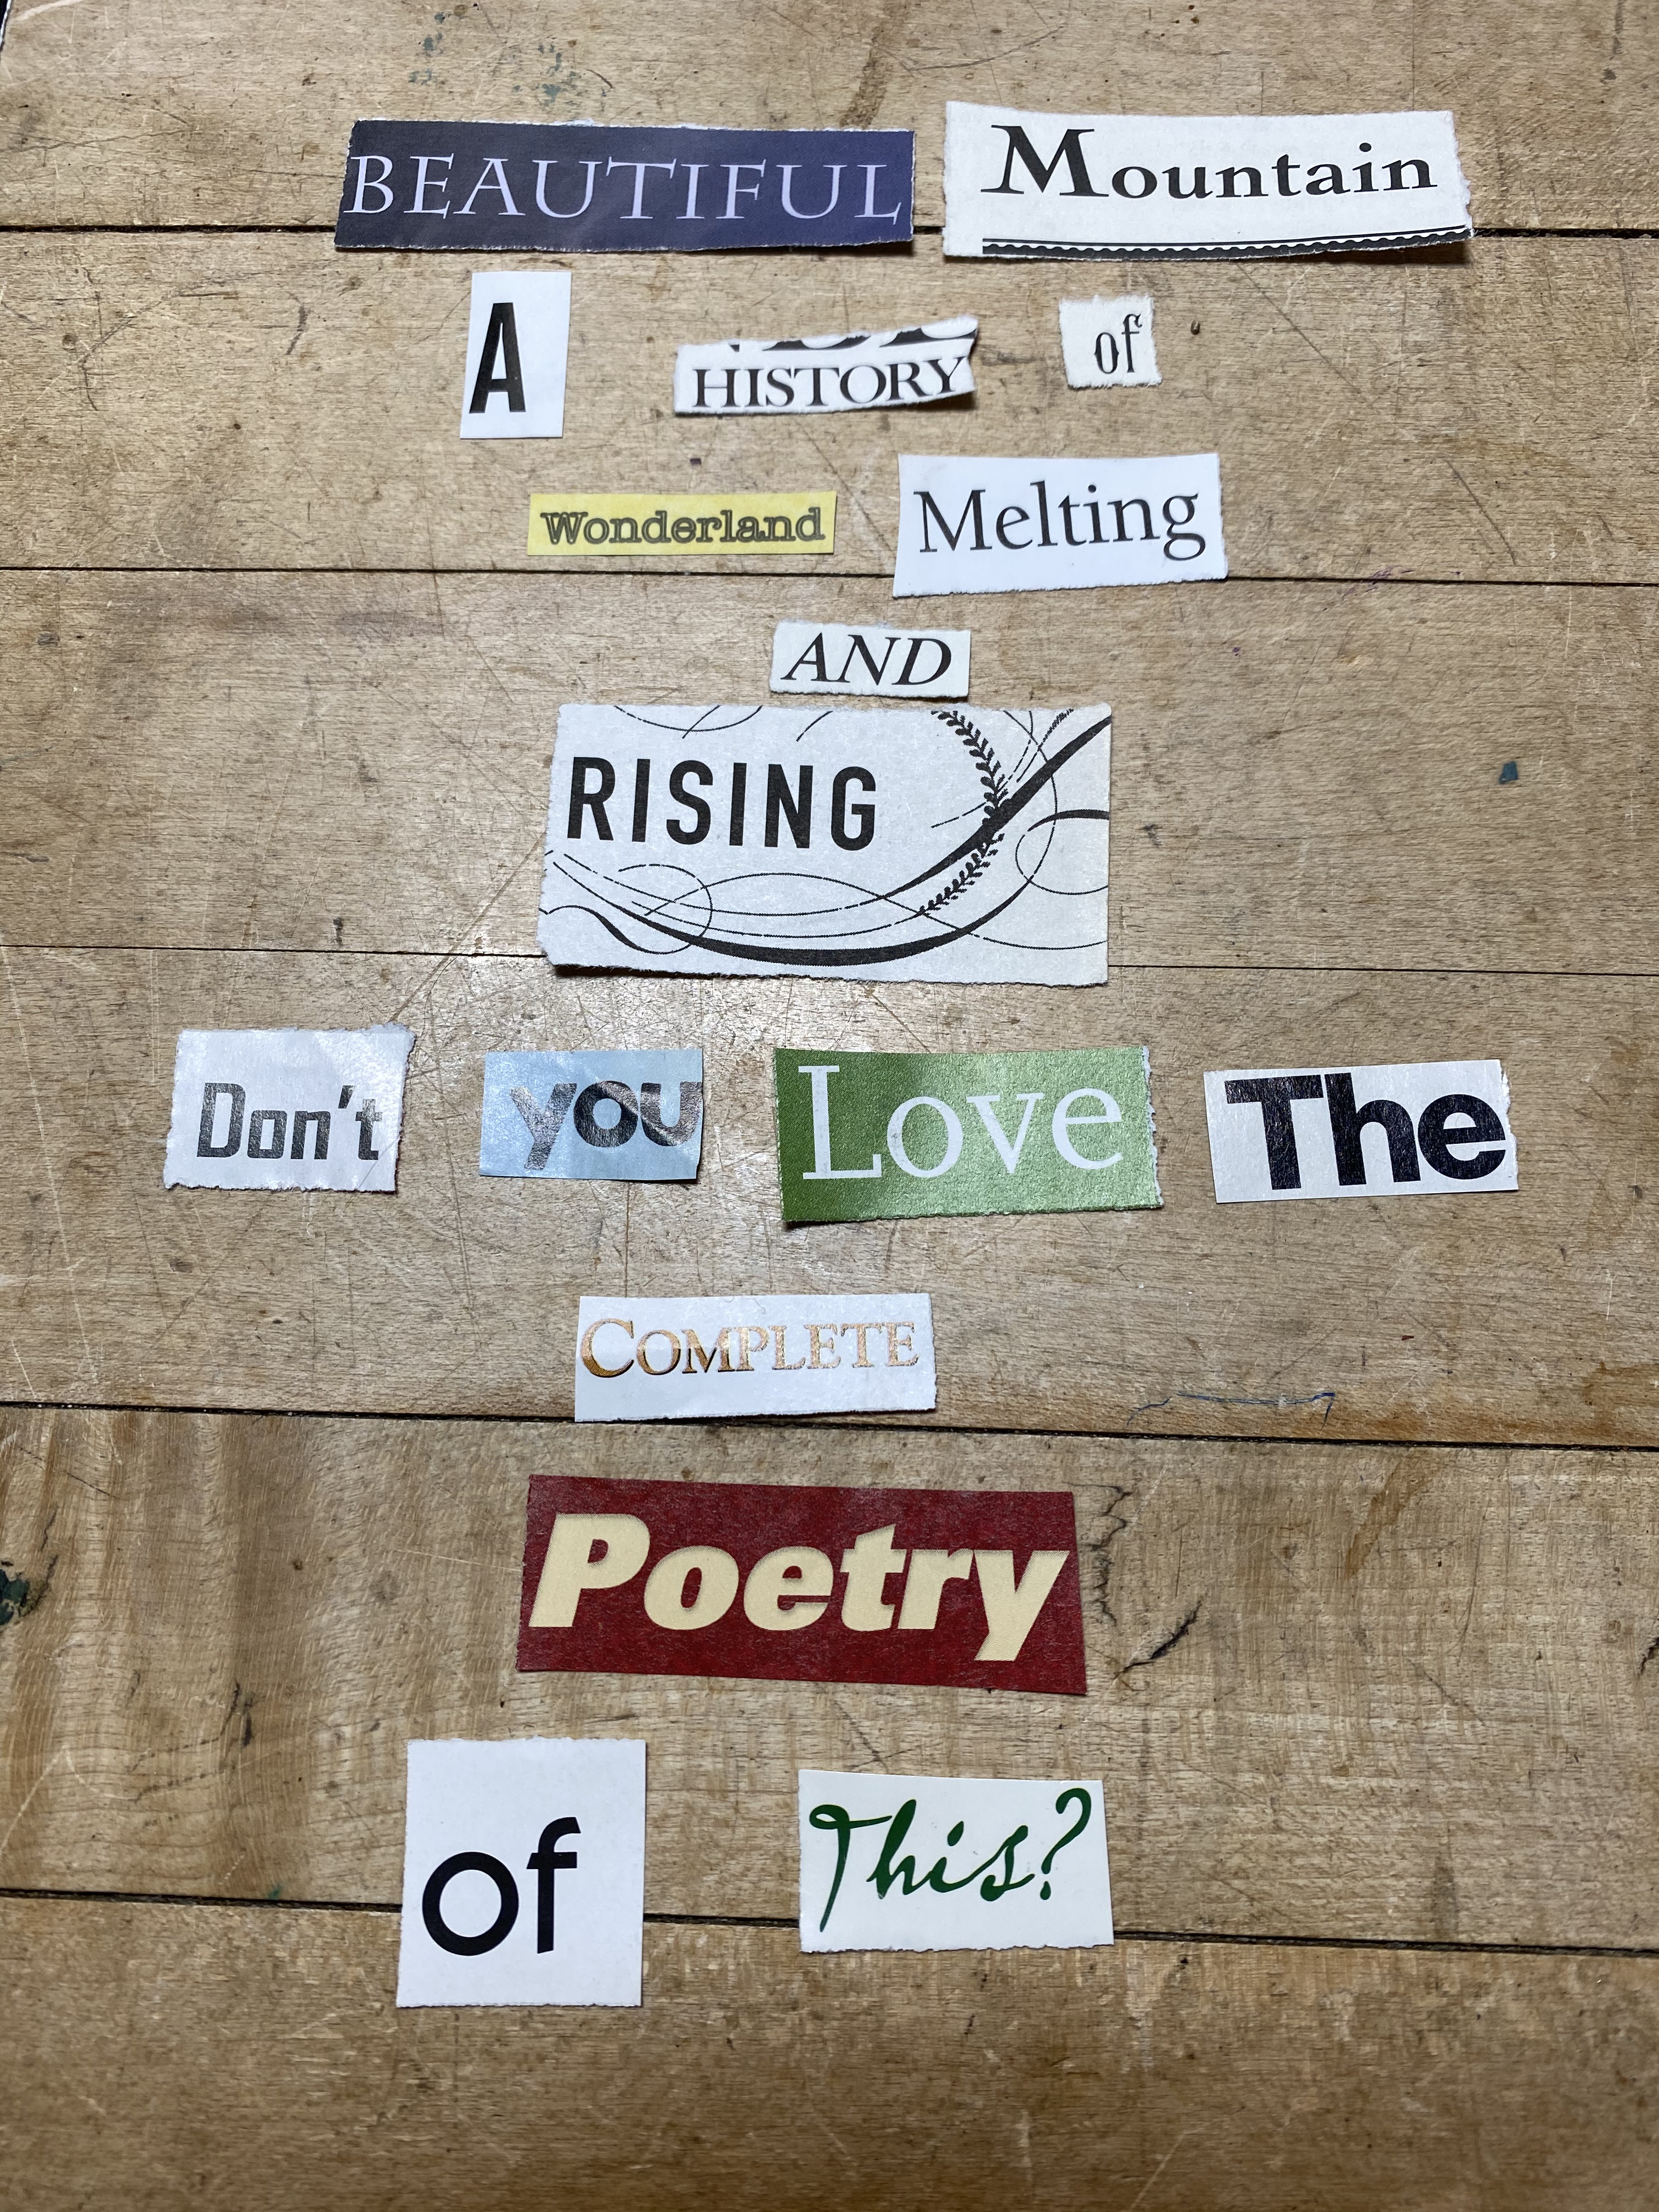 BEAUTIFUL Mountain
A HISTORY of
Wonderland Melting
AND
RISING
Don't you Love The
COMPLETE
Poetry
of This?